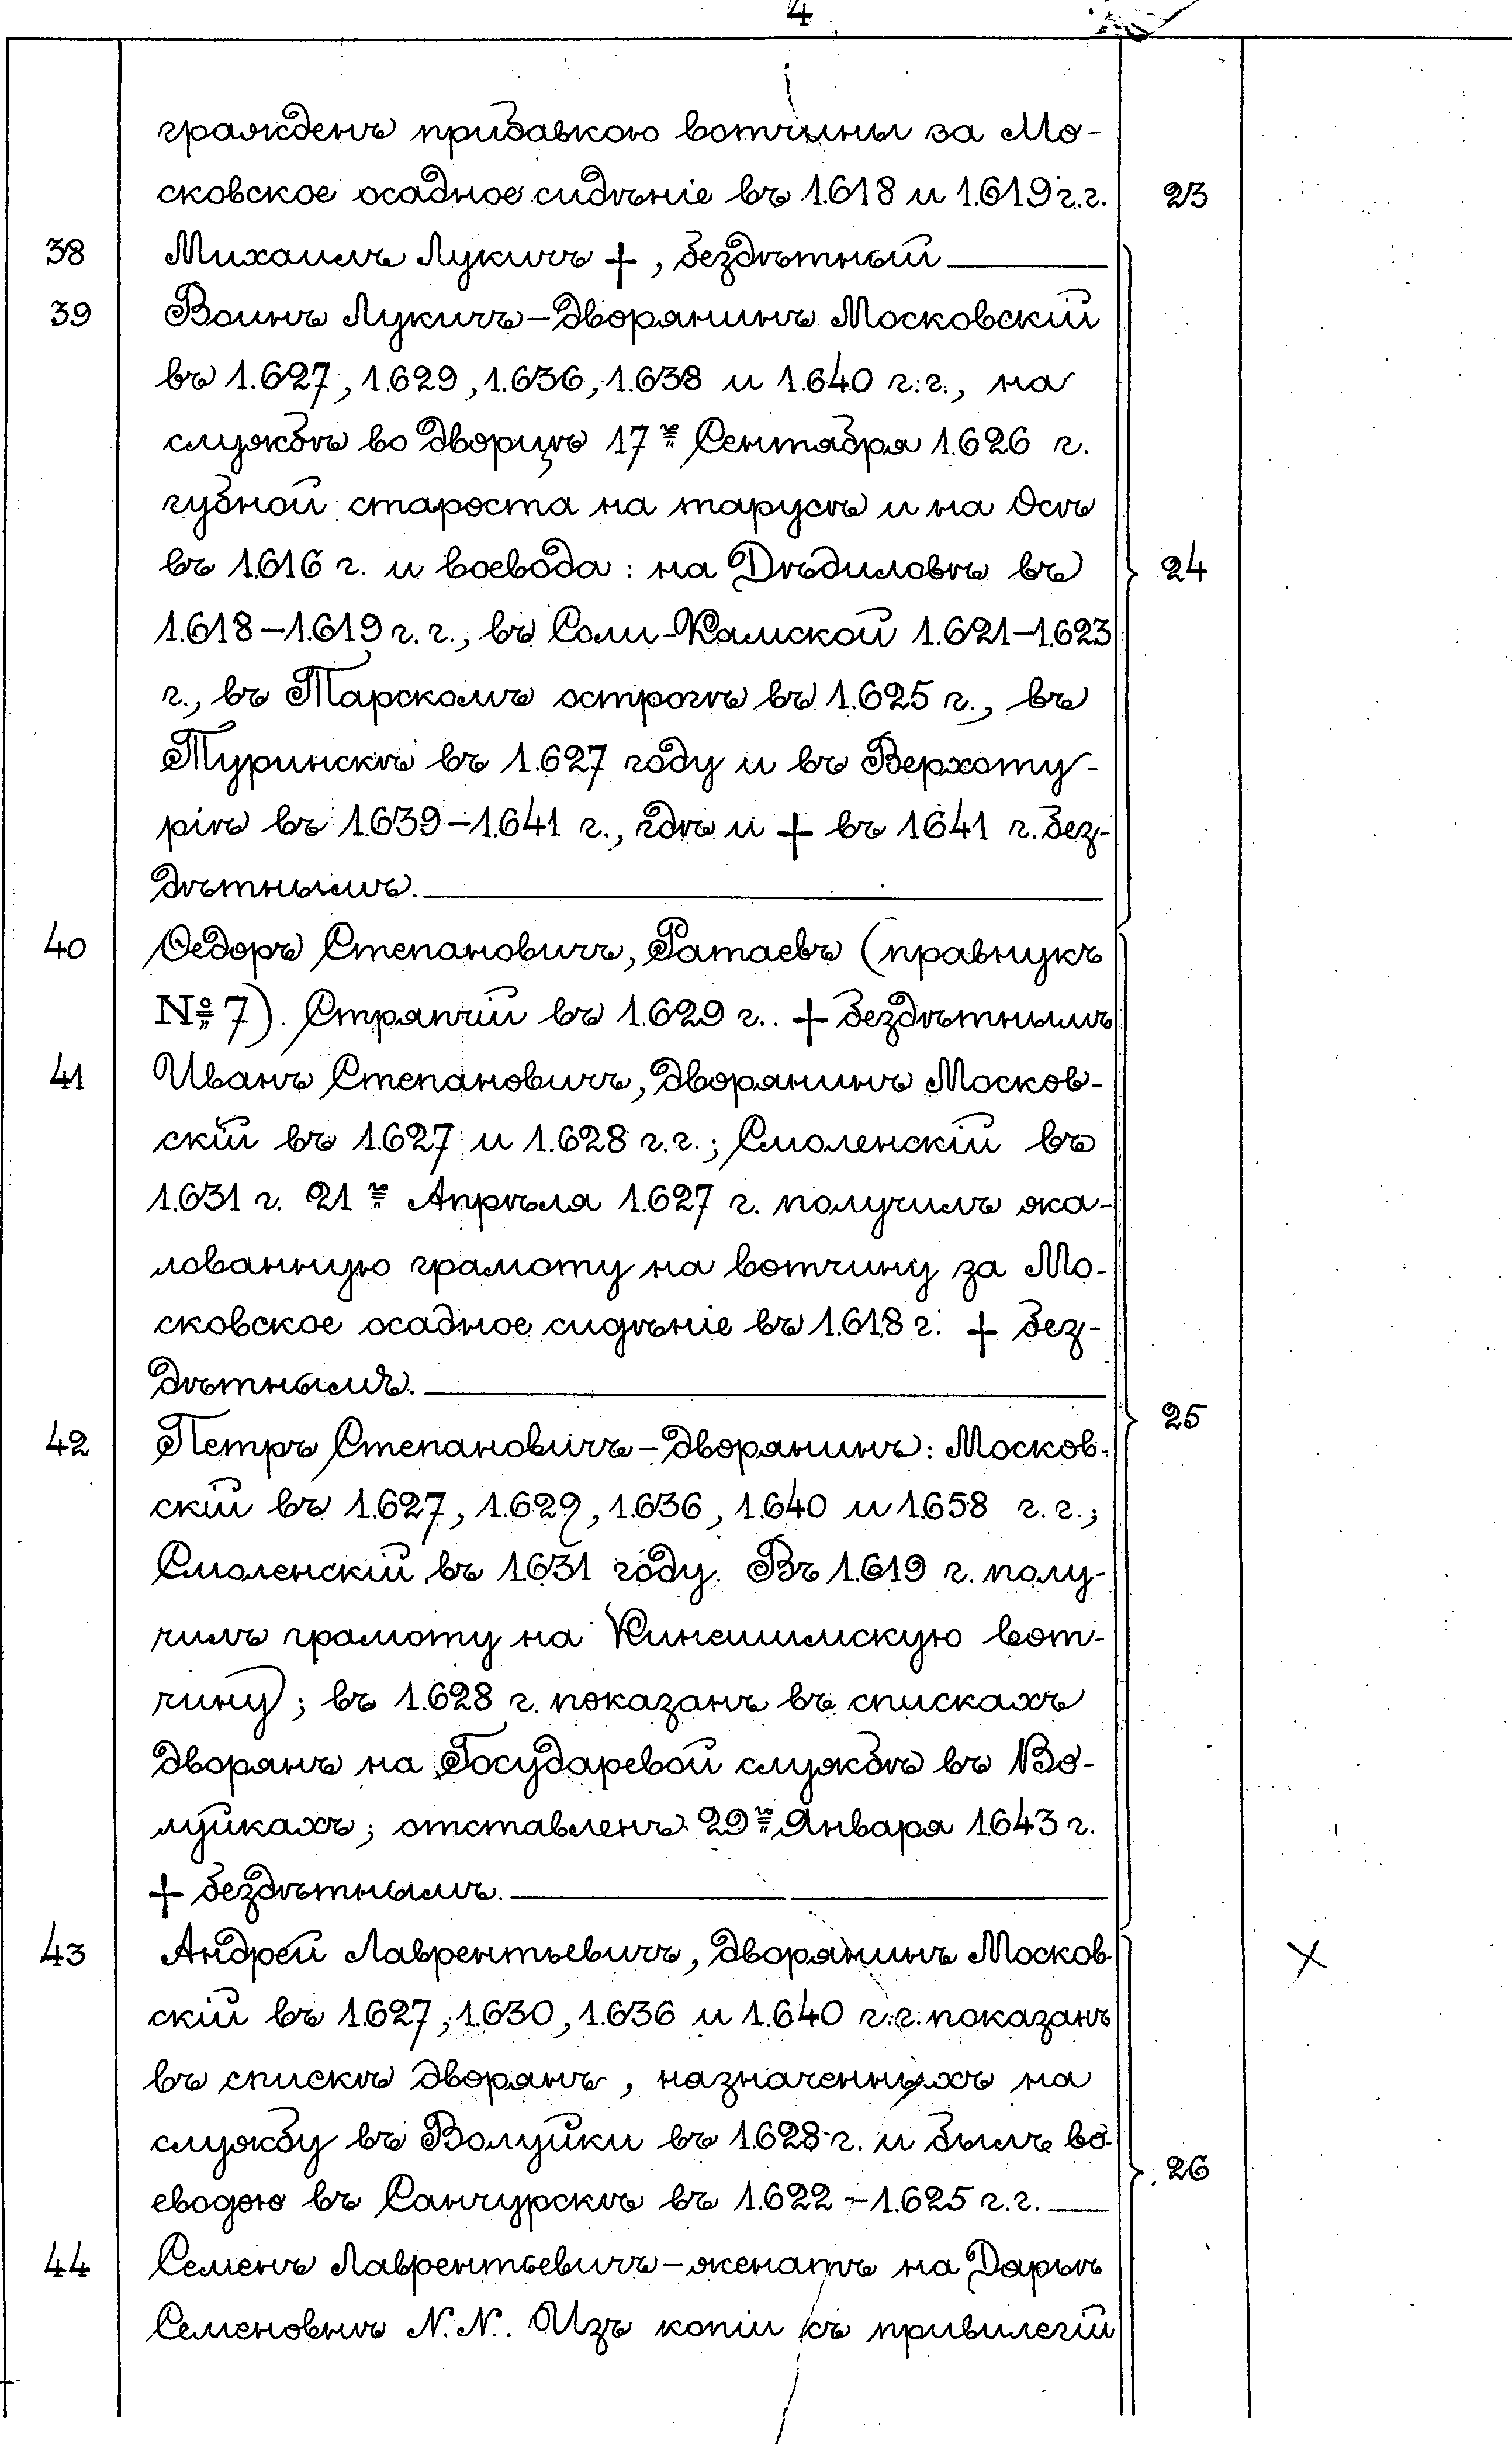 4
гражденъ придавкою вотчины за Мо-
сковское осадное сидѣніе въ 1.618 и 1.619 г.г. 23
38 Михаилъ Лукичъ +, бездѣтный
39 Воинъ Лукичъ – дворянинъ Московскій
въ 1.627, 1.629, 1.636, 1.638 и 1.640 г.г., на
службѣ во дворцѣ 17го Сентября 1.626 г.
губной староста на тарусѣ и на Осѣ
въ 1.616 г. и воевода: на Дѣдиловѣ въ 24
1.618–1.619 г.г., въ Соли-Камской 1.621–1.623
г., въ Тарскомъ острогѣ въ 1.625 г., въ
Туринскѣ въ 1.627 году и въ Верхоту-
ріѣ въ 1.639–1.641 г., гдѣ и + въ 1641 г. без-
дѣтнымъ.
40 Ѳедоръ Степановичъ, Ратаевъ (правнукъ
№ 7). Стряпчій въ 1.629 г.. + бездѣтнымъ
41 Иванъ Степановичъ, дворянинъ Москов-
скій въ 1.627 и 1.628 г.г.; Смоленскій въ
1.631 г. 21го Апрѣля 1.627 г. получилъ жа-
лованную грамоту на вотчину за Мо-
сковское осадное сидѣніе въ 1.618 г. + без-
дѣтнымъ.
25
42 Петръ Степановичъ – дворянинъ: Москов-
скій въ 1.627, 1.629, 1.636, 1.640 и 1.658 г.г.;
Смоленскій въ 1.631 году. Въ 1.619 г. полу-
чилъ грамоту на Кинешимскую вот-
чину; въ 1.628 г. показанъ въ спискахъ
дворянъ на Государевой службѣ въ Во-
луйкахъ; отставленъ 29го Января 1.643 г.
+ бездѣтнымъ.
43 Андрей Лаврентьевичъ, дворянинъ Москов
скій въ 1.627, 1.630, 1.636 и 1.640 г.г. показанъ
въ спискѣ дворянъ, назначенныхъ на
службу въ Волуйки въ 1.628 г. и былъ во-
еводою въ Санчурскѣ въ 1.622–1.625 г.г. 26
44 Семенъ Лаврентьевичъ – женатъ на Дарьѣ
Семеновнѣ N.N.. Изъ копіи съ привилегій